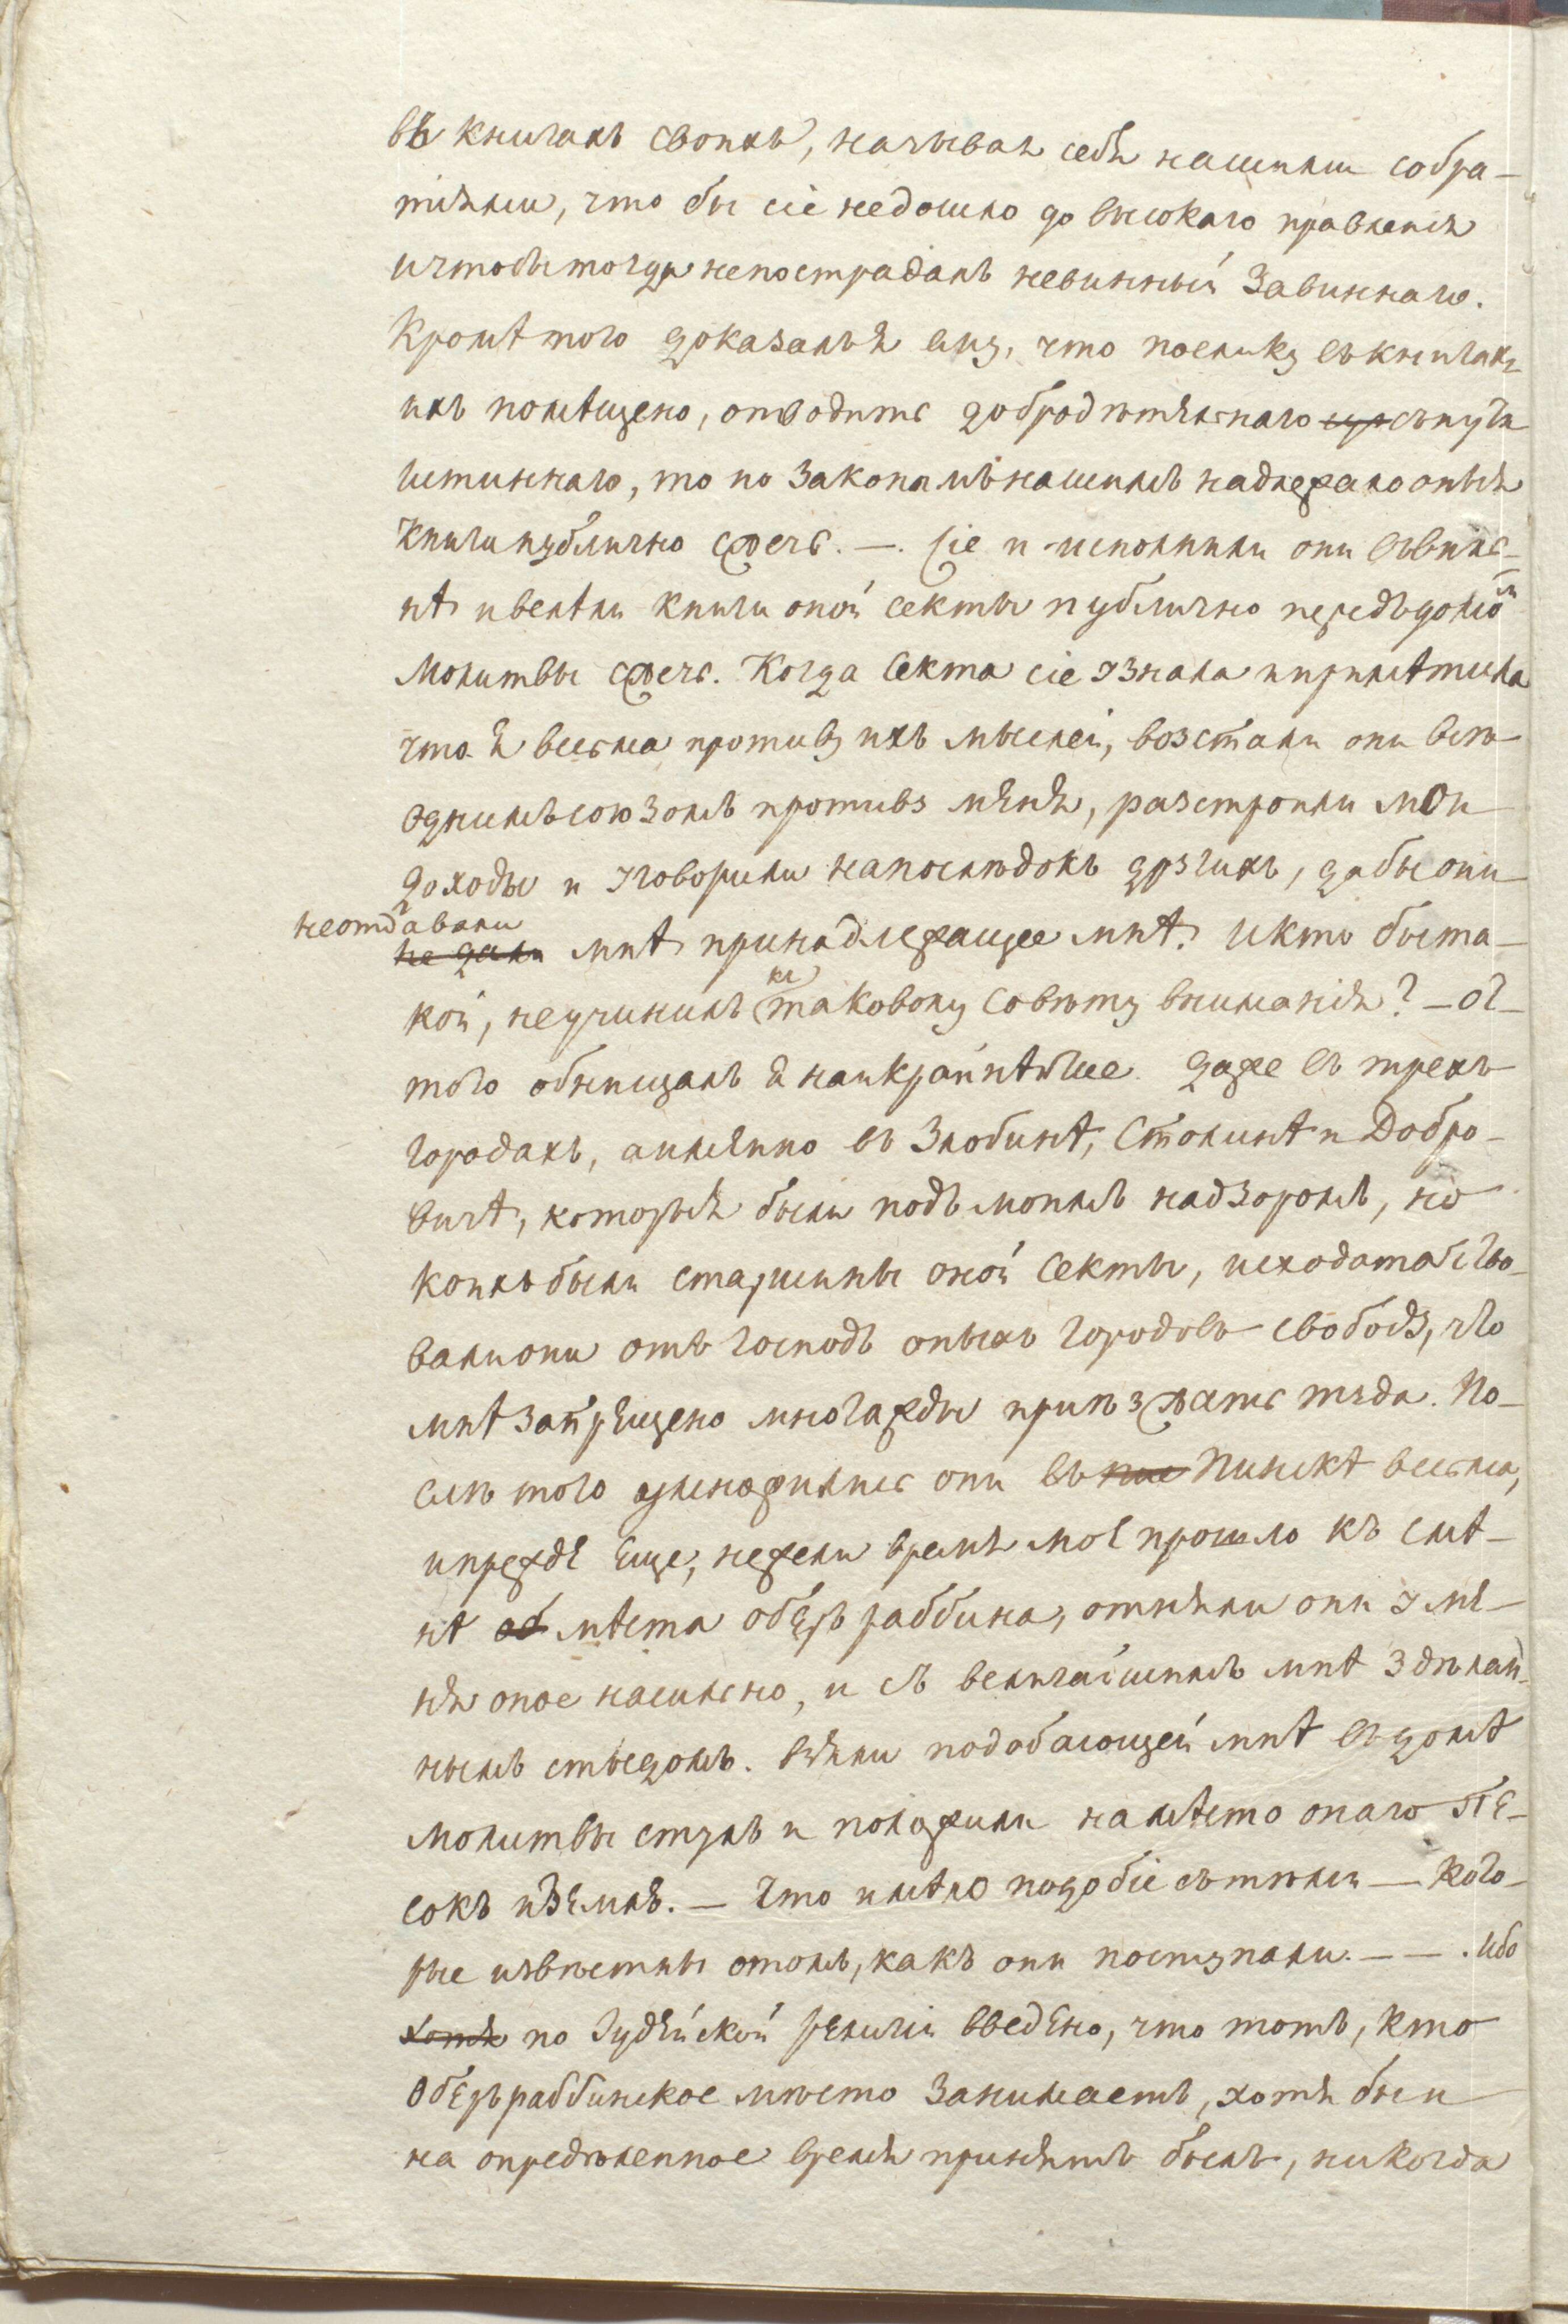 въ книгахъ своихъ, называя себя нашими собра-
тіями, что бы сіе недошло до высокаго правленія
ичтобы тогда непострадалъ невинный завиннаго.
Кромѣ того доказалъ я ему, что поелику въкнигахъ
ихъ помѣщено, отводить добродѣтельнаго съпути
истиннаго, то по законамъ нашимъ надлежало оныя
книги публично сжечь. —. Сіе и исполнили они въвиль-
нѣ ивелѣли книги оной секты публично передъ домомъ
молитвы сжечь. Когда секта сіе узнала ипримѣтила
что я весьма противу ихъ мыслей, возстали они всѣ
однимъ союзомъ противу меня, разстроили мои
доходы и уговорили напослѣдокъ другихъ, дабы они
неотдавали
не дали мнѣ принадлежащее мнѣ. Икто бы та-
кой, неучинилъ къ таковому совѣту вниманія? — от-
того обнищалъ я наикрайнѣйше. Даже въ трехъ
городахъ, аимянно въ Злобинѣ, Столинѣ и Добро-
вичѣ, которыя были подъ моимъ надзоромъ, но
коихъ были старшины оной секты, исходатайство-
вали они отъ господъ оныхъ городовъ свободу, что
мнѣ запрещено многажды приѣзжать туда. По-
слѣ того умножились они въ Пинскѣ весьма,
ипрежде еще, нежели время мое прошло къ смѣ-
нѣ об мѣста оберъ раббина, отняли они у ме-
ня оное насильно, и съ величайшимъ мнѣ здѣлан-
нымъ стыдомъ. Взяли подобающей мнѣ въ домѣ
молитвы стулъ и положили намѣсто онаго пе-
сокъ иземлю. — Что имѣло подобіе сътѣми — кото-
рые извѣстны отомъ, какъ они поступали. — — . Ибо
хотя по Іудейской религіи введено, что тотъ, кто
Оберъ раббинское мѣсто занимаетъ, хотя бы и
на опредѣленное время принятъ былъ, никогда